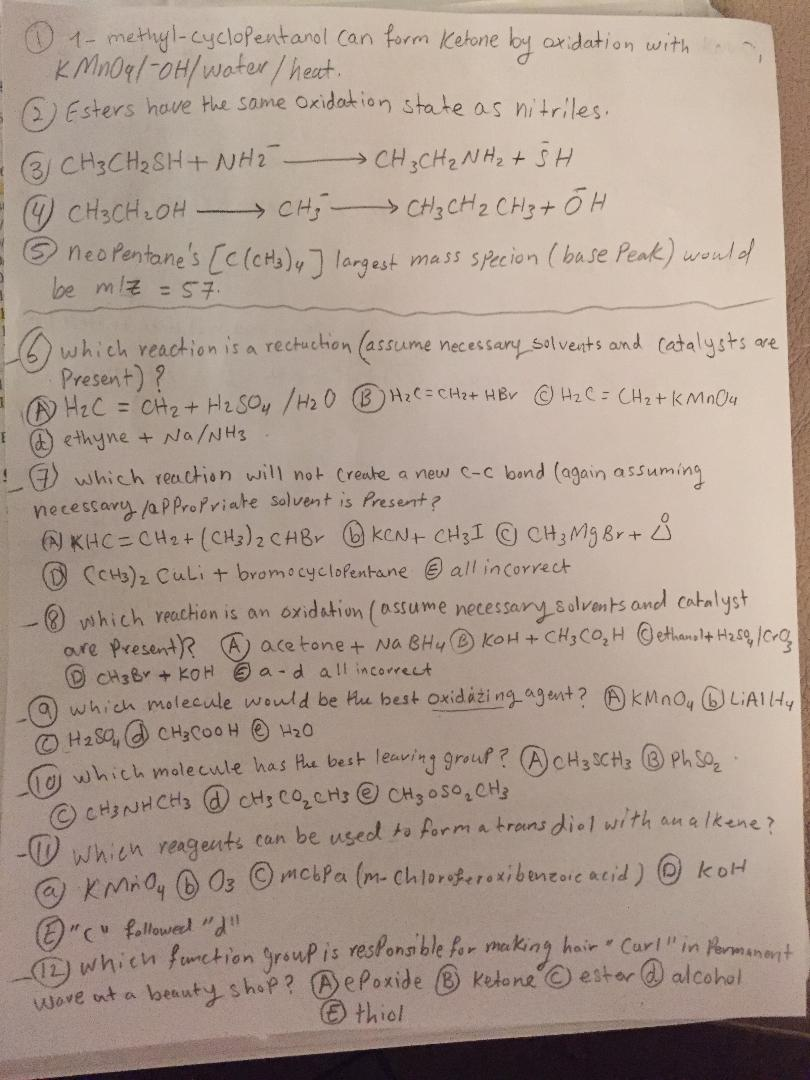 ① 1- methyl-cyclopentanol can form ketone by oxidation with
KMnO4/⁻OH/water/heat.
② Esters have the same oxidation state as nitriles.
③ CH3CH2SH + NH2⁻ ⟶ CH3CH2NH2 + S̄H
④ CH3CH2OH ⟶ CH3⁻ ⟶ CH3CH2CH3 + ŌH
⑤ neopentane's [C(CH3)4] largest mass specion (base Peak) would
be m/z = 57.
⑥ which reaction is a rectuction (assume necessary solvents and catalysts are
Present) ?
Ⓐ H2C = CH2 + H2SO4 /H2O Ⓑ H2C=CH2+ HBr Ⓒ H2C = CH2 + KMnO4
ⓓ ethyne + Na/NH3 .
⑦ which reaction will not create a new c-c bond (again assuming
necessary /appropriate solvent is Present?
Ⓐ KHC = CH2 + (CH3)2 CHBr ⓑ KCN + CH3I Ⓒ CH3MgBr + O
Ⓓ (CH3)2 CuLi + bromocyclopentane Ⓔ all incorrect
⑧ which reaction is an oxidation (assume necessary solvents and catalyst
are Present)? Ⓐ acetone + NaBH4 Ⓑ KOH + CH3CO2H Ⓒ ethanol + H2SO4/CrO3
Ⓓ CH3Br + KOH Ⓔ a-d all incorrect
⑨ which molecule would be the best oxidazing agent? Ⓐ KMnO4 ⓑ LiAlH4
Ⓒ H2SO4 ⓓ CH3COOH ⓔ H2O
⑩ which molecule has the best leaving group? Ⓐ CH3SCH3 Ⓑ PhSO2 .
Ⓒ CH3NHCH3 ⓓ CH3CO2CH3 ⓔ CH3OSO2CH3
⑪ which reagents can be used to form a trans diol with an alkene?
ⓐ KMnO4 ⓑ O3 Ⓒ mcbpa (m-chloroferoxibenzoic acid) Ⓓ KOH
Ⓔ "c" followed "d"
⑫ which function group is responsible for making hair "Curl" in Permanent
wave at a beauty shop? Ⓐ epoxide Ⓑ Ketone Ⓒ ester ⓓ alcohol
Ⓔ thiol